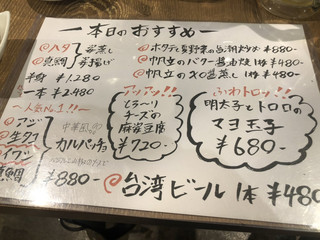 一本日のおすすめ一
@ハタ 姿蒸し
@真鯛 姿揚げ
半身 ¥1,280
一本 ¥2,480
@ホタテと夏野菜の ¥880-
@帆立のバター醤油焼 1ヶ ¥480-
@帆立のXO醤蒸し 1ヶ ¥480-
〜人気No.1!!〜
@アジ
@生タコ
イワシ
真鯛
中華風
カルパッチョ
¥880-
アツアツ!!
とろ〜り
チーズの
麻婆豆腐
¥720-
ふわトロッ!!
明太子とトロロの
マヨ玉子
¥680-
@台湾ビール 1本 ¥480